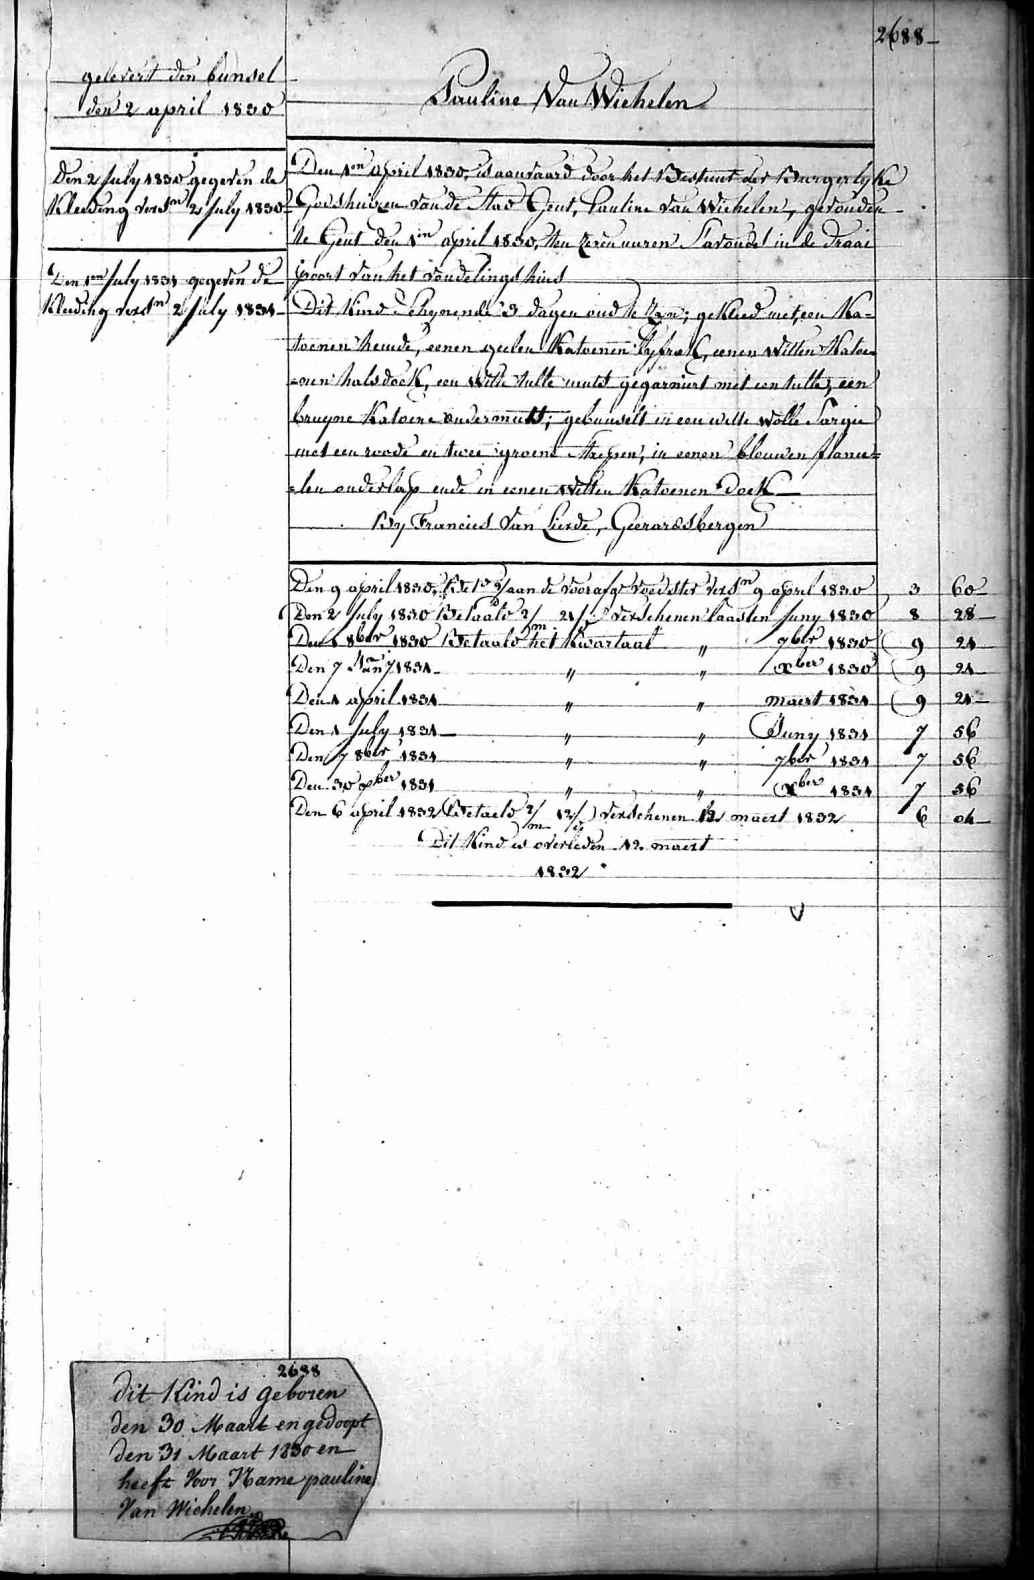 2688
gelevert den bunsel
den 2 april 1830
Pauline Van Wichelen
Den 2 July 1830 gegeven de
Kleeding versn 2 July 1830
Den 1en July 1831 gegeven de
Kleeding versn 2 July 1831
Den 1en April 1830, is aanvaard door het Bestuur der Burgerlyke
Godshuizen van de Stad Gent, Pauline Van Wichelen, gevonden
te Gent den 1en april 1830, ten zeven uuren S'avonds in de draai
poort van het vondelingshuis
Dit Kind Schynende 3 dagen oud te Zyn; gekleed met een Ka-
toenen hemde, eenen geelen Katoenen lyfrok, eenen Witten Katoe-
=nen halsdoek, een Witte tulle muts gegarniert met een tulle, een
bruyne Katoene ondermuts; gebunselt in een witte wolle Sargie
met een roode en twee groene Strepen, in eenen blouwen flanel=
=len onderlap ende in eenen Witten Katoenen Doek
By Francies Van Lierde, Geerardsbergen
Den 9 april 1830, aan de voorafge voedster versn 9 april 1830 3 60
Den 2 July 1830 Betaald 2/m 21/d verschenen laasten Juny 1830 8 28
Den 1 8ber 1830 Betaald het Kwartaal " 7ber 1830 9 24
Den 7 Jany 1831 " " xber 1830 9 24
Den 1 april 1831 " " maert 1831 9 24
Den 1 July 1831 " " Juny 1831 7 56
Den 7 8ber 1831 " " 7ber 1831 7 56
Den 30 xber 1831 " " xber 1831 7 56
Den 6 april 1832 Betaeld 2/m 12/d verschenen 12 maert 1832 6 04
Dit Kind is overleden 12 maert
1832
2688
dit Kind is geboren
den 30 Maart en gedoopt
den 31 Maart 1830 en
heeft Voor Name pauline
Van Wichelen